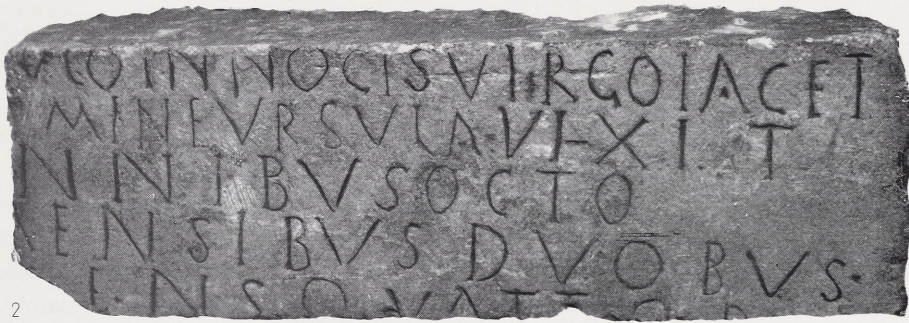 VLOINNOCISVIRGOIACET
MINEVRSVLA·VIXIT
NNIBVSOCTO
ENSIBVSDVOBVS·
ENSQVATTOR
2